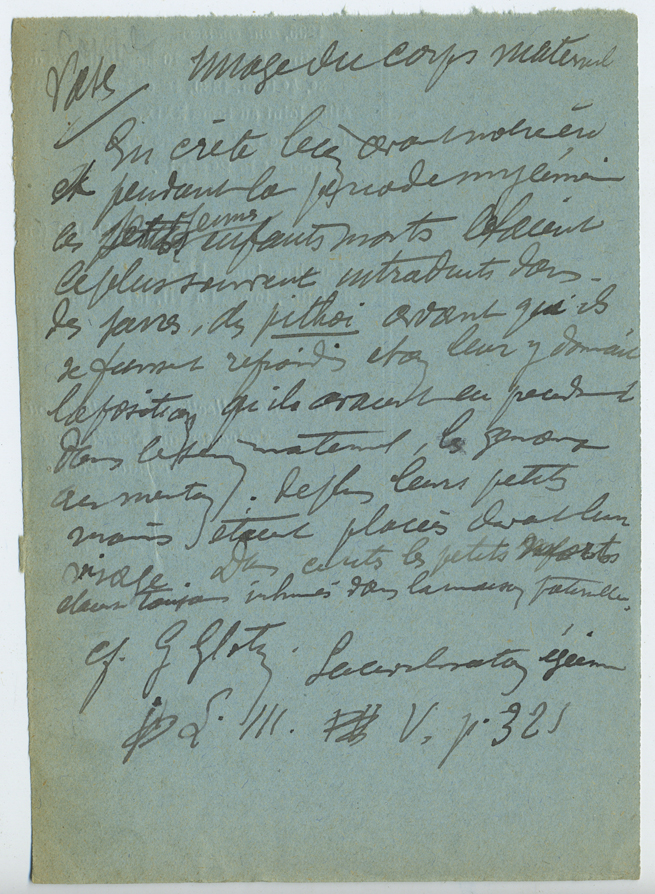 Vase Image du corps maternel
En crète avant notre ère
et pendant la période mycénienne
les petits jeunes enfants morts étaient
le plus souvent introduits dans
des jarres, des pithoi avant qu'ils
se fussent refroidis et on leur y donnait
la position qu'ils avaient eu pendant
dans le sein maternel, les genoux
au menton. De plus leurs petits
mains étaient placées devant leur
visage. Dans les petits enfants
étaient toujours inhumés dans la maison paternelle.
cf. G Glotz. La civilisation égéenne
L. III. V, p. 321